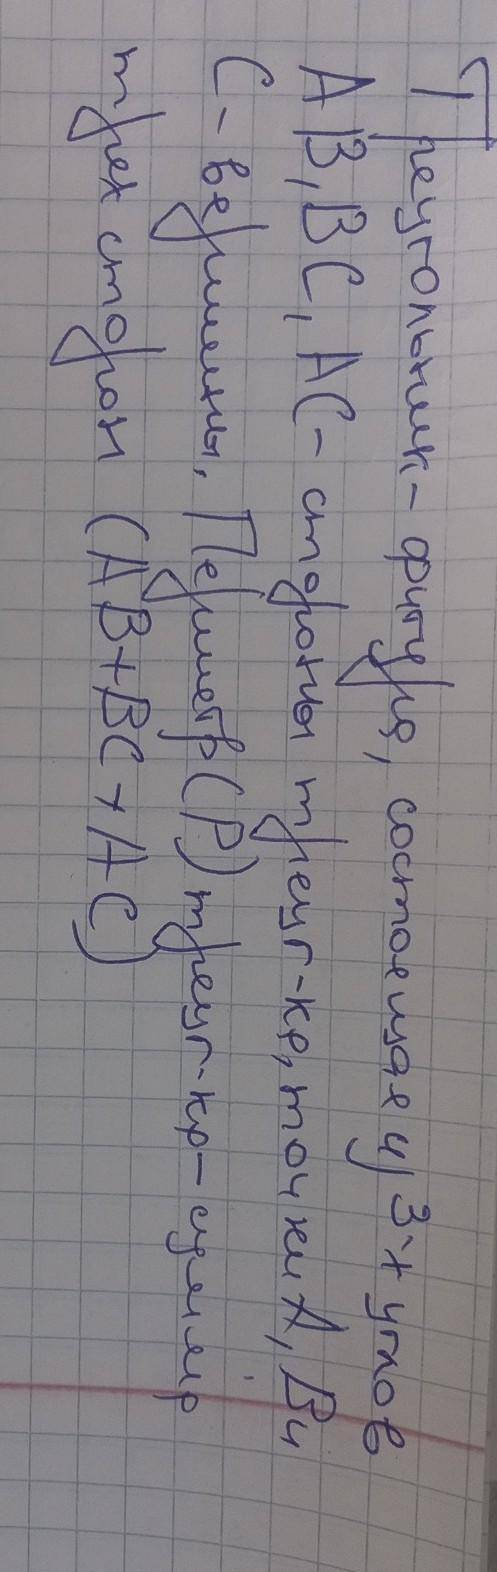 Треугольник - фигура, состоящая из 3-х углов
AB, BC, AC - стороны треуг-ка, точки A, B и
C - вершины, Периметр (P) треуг-ка - сумма
трех сторон (AB + BC + AC)